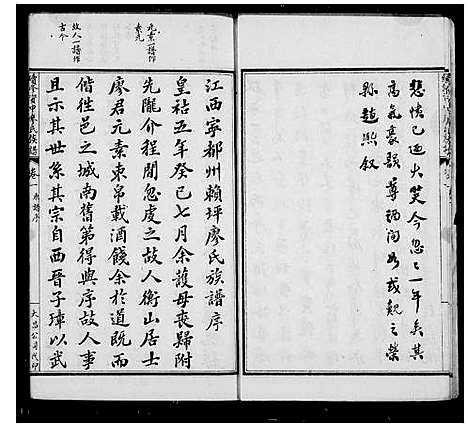 悲懷已過大笑今忽忽一年矣其
高氣豪韻尊酒間如或覩之榮
縣趙熙叙
江西寧都州賴坪廖氏族譜序
皇祜五年癸巳七月余護母喪歸附
先隴介程閒忽虔之故人衡山居士
廖君元素束帛載酒餞余於道既而
偕徃邑之城南舊第得與序故人事
且示其世系其宗自西晉子璋以武
元素一譜作素九
故人一譜作古今
續修資中廖氏族譜
卷一
序
大昌公司代印